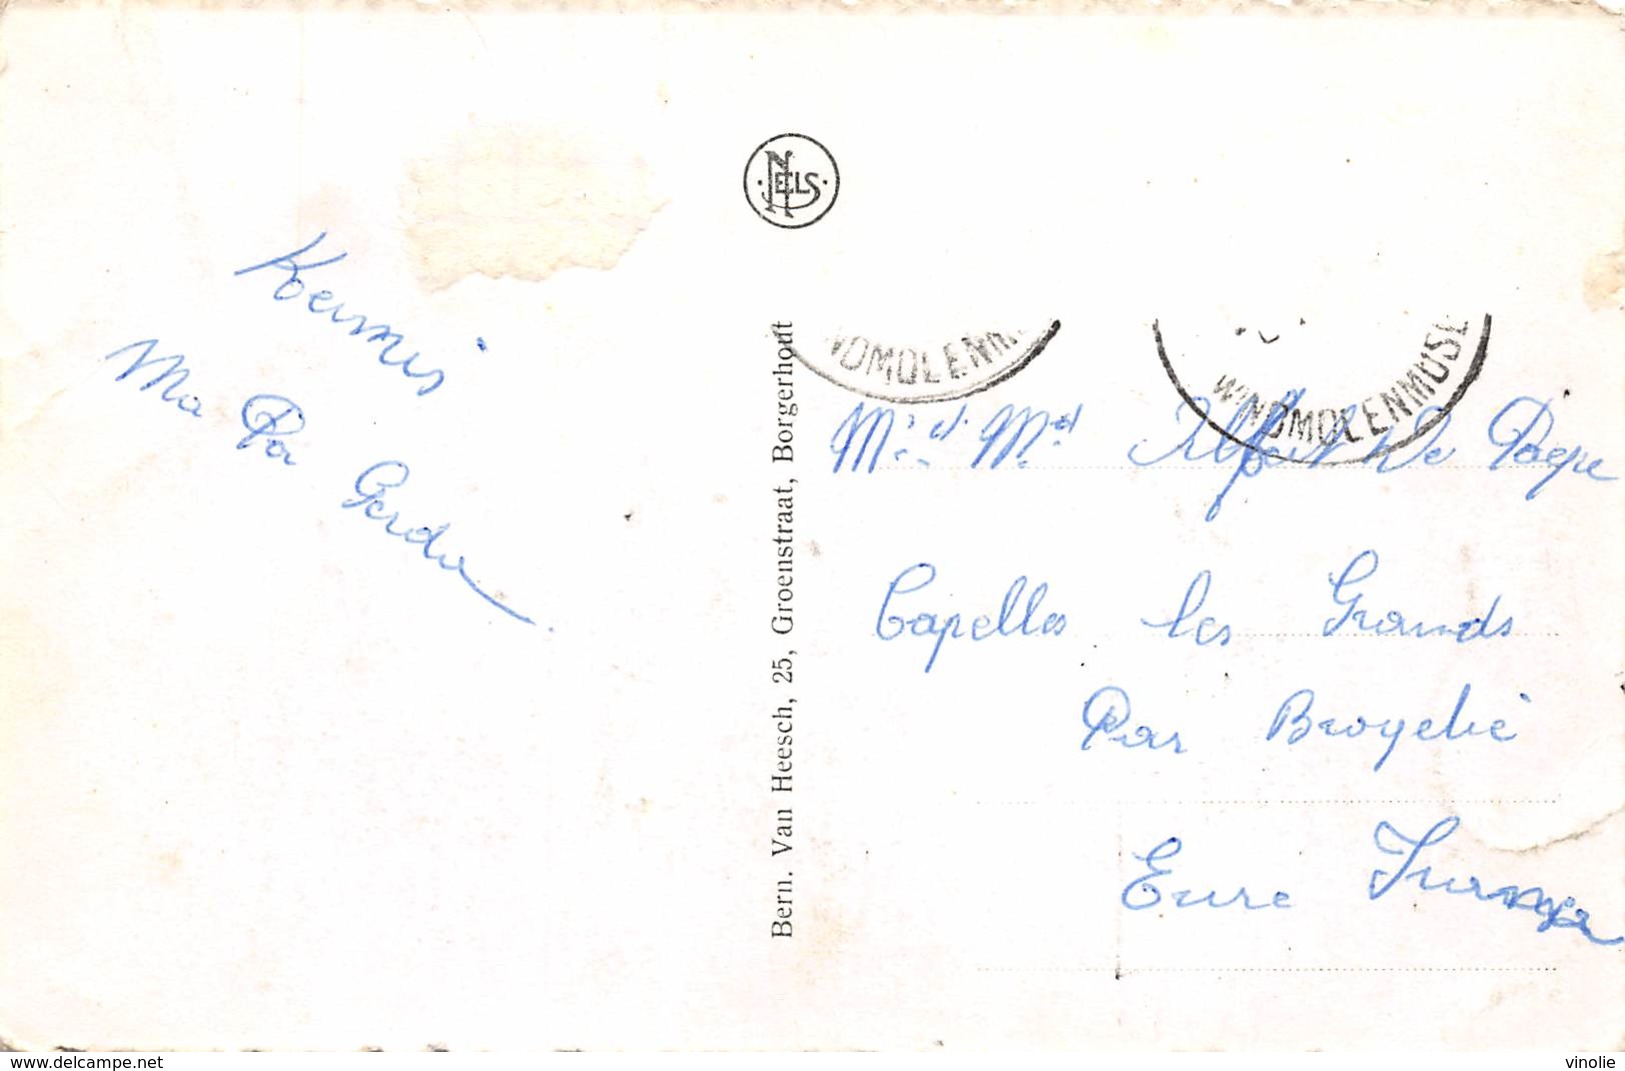 Kermis
Ma Pa Gerda
NELS
Bern. Van Heesch, 25, Groenstraat, Borgerhout
NDMOLENM
WINDMOLENMUSE
Mr. et Md Albert De Paepe
Capelles les Grands
Par Broyelie
Eure
www.delcampe.net
vinolie